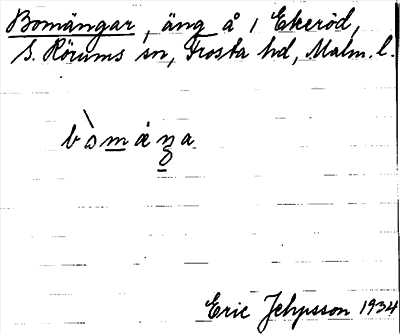 Bomängar, äng å 1 Ekeröd,
S. Rörums sn, Frosta hd, Malm. l.
bòmáŋa
Eric Jehpsson 1934